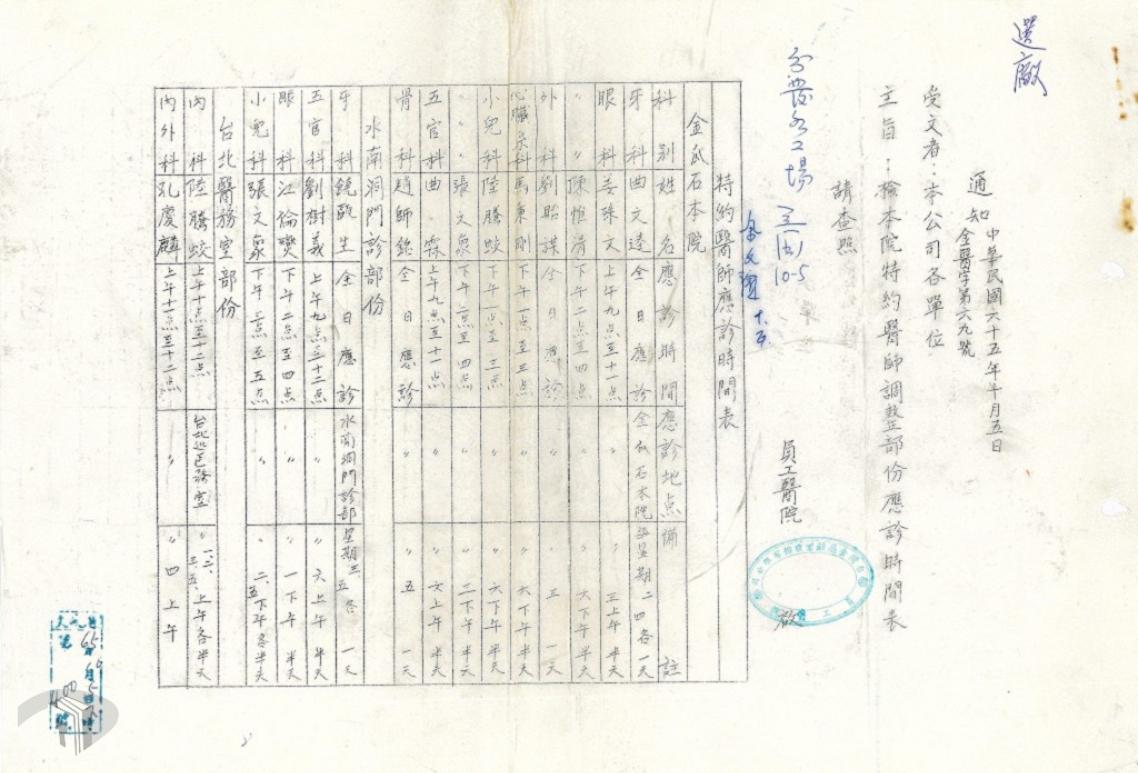 選廠
通知 中華民國六十五年十月五日
金醫字第六九號
受文者：本公司各單位
主旨：檢本院特約醫師調整部份應診時間表
請查照
員工醫院
啟
10-5
特約醫師應診時間表
科別 姓名 應診時間 應診地点 備註
金瓜石本院
牙科 曲文遠 全日應診 金瓜石本院 每星期二四各一天
眼科 姜珠文 上午九点至十一点 〃 〃三上午半天
〃 陳惟清 下午二点至四点 〃 〃六下午半天
外科 劉貽謀 全日應診 〃 〃三一天
心臟內科 馬東剛 下午一点至三点 〃 〃六下午半天
小兒科 陸騰蛟 下午一点至三点 〃 〃六下午半天
〃〃 張文象 下午二点至四点 〃 〃二下午半天
五官科 曲霖 上午九点至十二点 〃 〃六上午半天
骨科 趙師錢 全日應診 〃 〃五一天
水南洞門診部份
牙科 饒 生 全日應診 水南洞門診部 星期三、五各一天
五官科 劉樹義 上午九点至十二点 〃 〃六上午半天
眼科 江倫 下午二点至四点 〃 〃一下午半天
小兒科 張文象 下午三点至五点 〃 〃二、五下午各半天
台北醫務室部份
內科 陸騰蛟 上午十点至十二点 台北醫務室 〃一、二、三、五、上午各半天
內外科 孔慶麟 上午十一点至十二点 〃 〃四上午
65
400